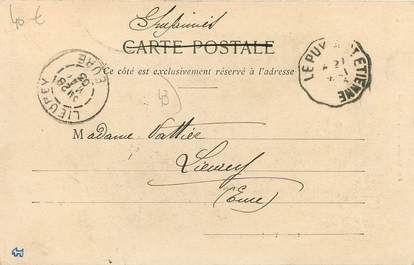 40 €
Imprimés
CARTE POSTALE
Ce côté est exclusivement réservé à l'adresse
LE PUY A ST ETIENNE
LIEUREY
EURE
Madame Vattier
Lieurey
(Eure)